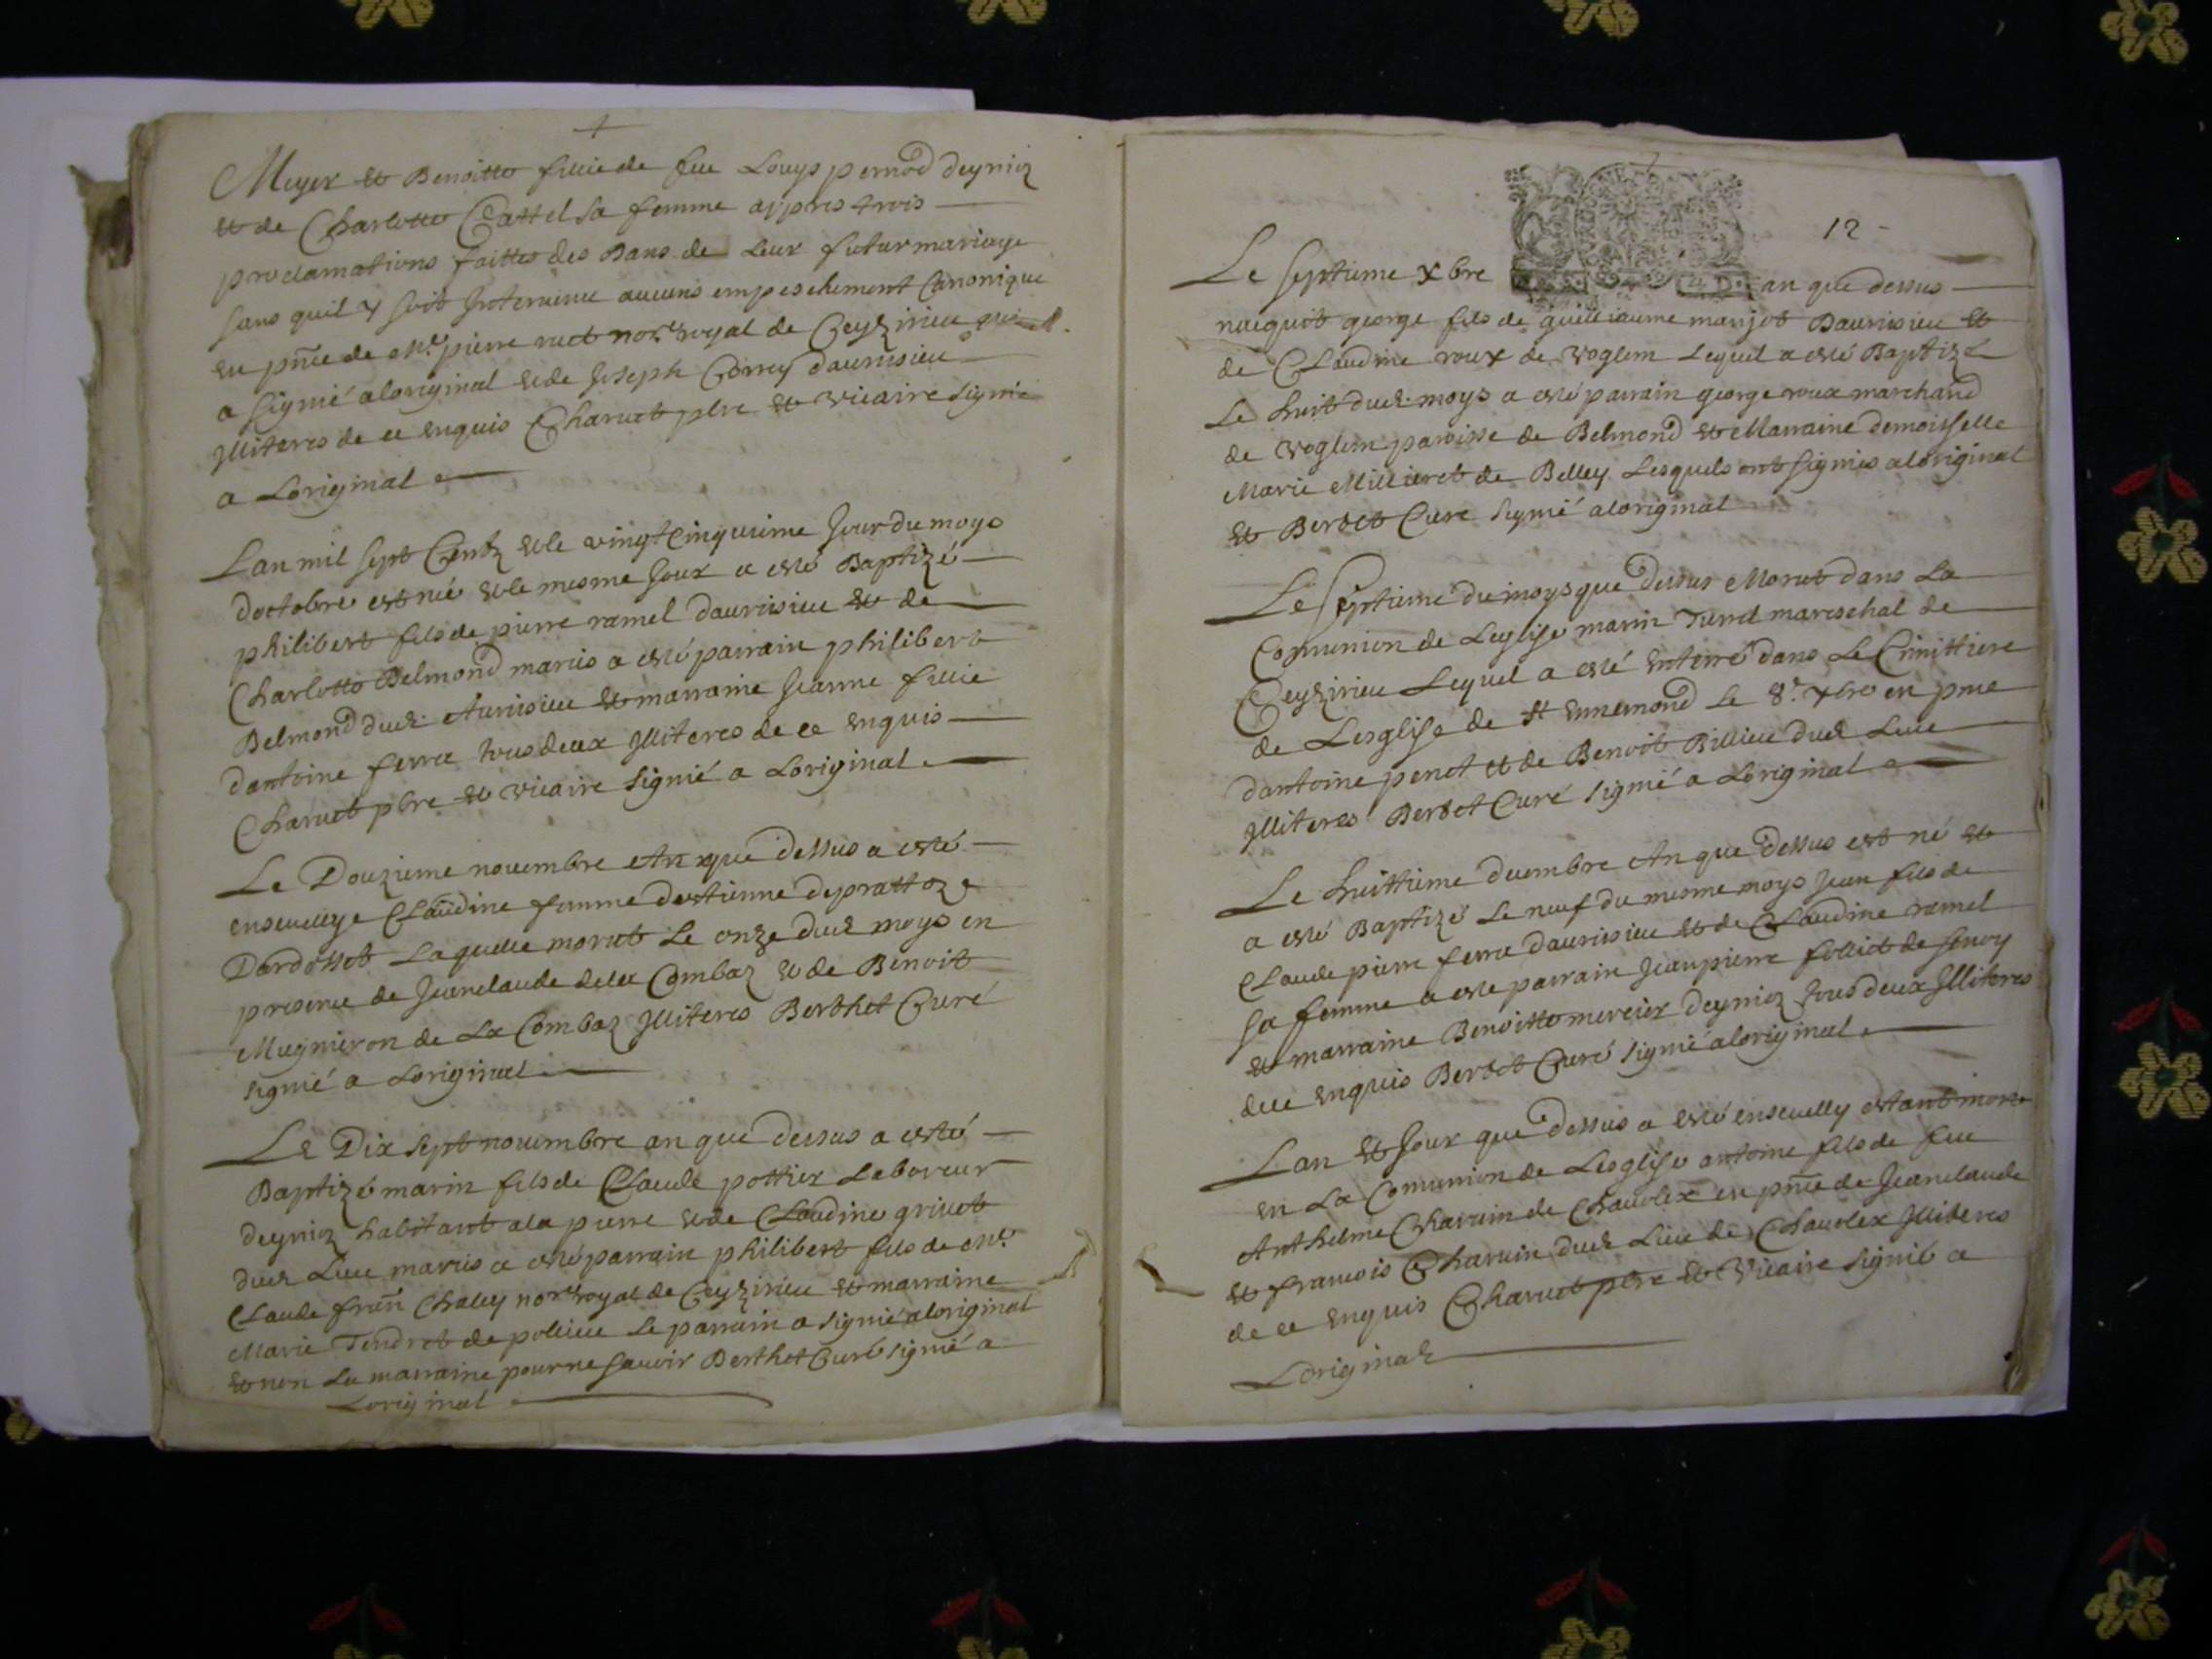 Meyer et Benoitte fillie de feu Louys pernod deynioz
et de Charlotte Cattel sa femme appres trois
proclamations faittes des Bans de Leur futur mariage
sans quil y soit Intervenu aucuns empeschement Canonique
en pnce de Me pierre ruet nore royal de Ceyzirieu qui
a signié aloriginal et de Joseph Gorrey daurisieu
Illiteres de ce enquis Charuet pbre et vicaire signié
a Loriginal
Lan mil sept Centz et le vingt cinquieme Jour du moys
doctobre est né et le mesme Jour a esté Baptizé
philibert fils de pierre ramel daurisieu et de
Charlotte Belmond mariés a esté parrain philibert
Belmond dud. Aurisieu et marraine Jeanne fillie
dantoine ferra tous deux Illiteres de ce enquis
Charuet pbre et vicaire signié a Loriginal
Le Douzieme novembre An que dessus a esté
ensevellye Claudine femme destienne deprattoz
Dardosset Laquelle morut Le onze dud moys en
presence de Jeanclaude dela Combaz et de Benoit
Mugnieron de La Combaz Illiteres Berthet Curé
signié a Loriginal
Le Dix sept novembre an que dessus a esté
Baptizé marin fils de Claude pottier Laboreur
deynioz habitant ala pierre et de Claudine grivet
dud Lieu mariés a esté parrain philibert fils de Me
Claude fran Chaley nore royal de Ceyzirieu et marraine
Marie Tendret de pollieu Le parrain a signié aloriginal
et non La marraine pour ne savoir Berthet Curé signié a
Loriginal
12
Le septieme Xbre an que dessus
naquit george fils de guelliaume marjot Daurisieu et
de Claudine roux de voglem Lequel a esté Baptizé
Le huit dud. moys a esté parrain george roux marchand
de voglem paroisse de Belmond et Marraine demoisselle
Marie Millieret de Belley Lesquels ont signiés aloriginal
et Bertet Cure signié aloriginal
Le septieme du moys que dessus Morut dans La
Comunion de Leglise marin Turrel mareschal de
Ceyzirieu Lequel a esté Enterré dans Le Cimittiere
de Lesglise de St Ennemond Le 8e Xbre en pnce
dantoine penet et de Benoit Billieu dud Lieu
Illiteres Bertet Curé signié a Loriginal
Le huittieme decembre An que dessus est né et
a esté Baptizé Le neuf du mesme moys Jean fils de
Claude pierre ferra daurisieu et de Claudine ramel
sa femme a este parrain Jean pierre folliet de
et marraine Benoitte mercier deynioz tous deux Illiteres
dece enquis Bertet Curé signié aloriginal
Lan et Jour que dessus a esté ensevelly estant mort
en La Comunion de Lesglise antoine fils de feu
Anthelme Charvin de Chavolex en pnce de Jeanclaude
et francois Charvin dud Lieu de Chavolex Illiteres
de ce enquis Charuet pbre et Vicaire signié a
Loriginal